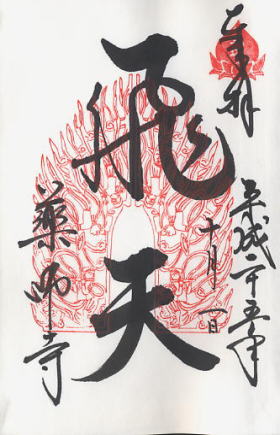 奉拝
平成二十五年
十月一日
飛天
薬師寺